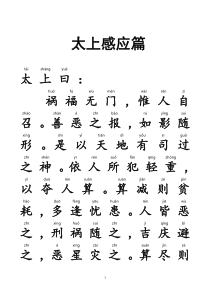 太上感应篇
tài shàng yuē
太上曰：
huò fú wú mén wéi rén zì
祸福无门，惟人自
zhào shàn è zhī bào rú yǐng suí
召。善恶之报，如影随
xíng shì yǐ tiān dì yǒu sī guò
形。是以天地有司过
zhī shén yī rén suǒ fàn qīng zhòng
之神。依人所犯轻重，
yǐ duó rén suàn suàn jiǎn zé pín
以夺人算。算减则贫
hào duō féng yōu huàn rén jiē wù
耗，多逢忧患。人皆恶
zhī xíng huò suí zhī jí qìng bì
之，刑祸随之，吉庆避
zhī è xīng zāi zhī suàn jìn zé
之，恶星灾之。算尽则